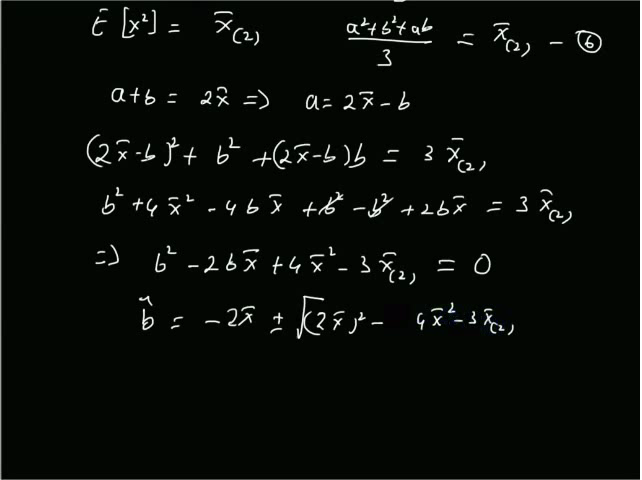 E [x²] = x̄₍₂₎    (a²+b²+ab)/3 = x̄₍₂₎ – ⑥
a+b = 2x̄ => a = 2x̄ – b
(2x̄-b)² + b² + (2x̄-b)b = 3 x̄₍₂₎
b² + 4x̄² - 4bx̄ + b² - b² + 2bx̄ = 3 x̄₍₂₎
=> b² - 2bx̄ + 4x̄² - 3x̄₍₂₎ = 0
b̂ = -2x̄ ± √(2x̄)² - 4x̄² - 3x̄₍₂₎